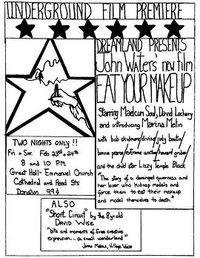 UNDERGROUND FILM PREMIERE
DREAMLAND PRESENTS
John Waters' new film
EAT YOUR MAKEUP
Starring Maelcum Soul, David Lochary
and introducing Marina Melin
with bob skidmore/divine/judy boutin/
and the child star Lizzy Temple Black
"The story of a deranged governess and
her lover who kidnap models and
force them to eat their makeup
and model themselves to death."
TWO NIGHTS ONLY!!
Fri + Sat Feb 23rd 24th
8 and 10 PM
Great Hall- Emmanuel Church
Cathedral and Read Sts
Donation 99¢
ALSO
"Short Circuit" by the 8 yr old
David Wise
"bits and moments of sheer creative
expression... a small wonderland"
Jonas Mekas, Village Voice